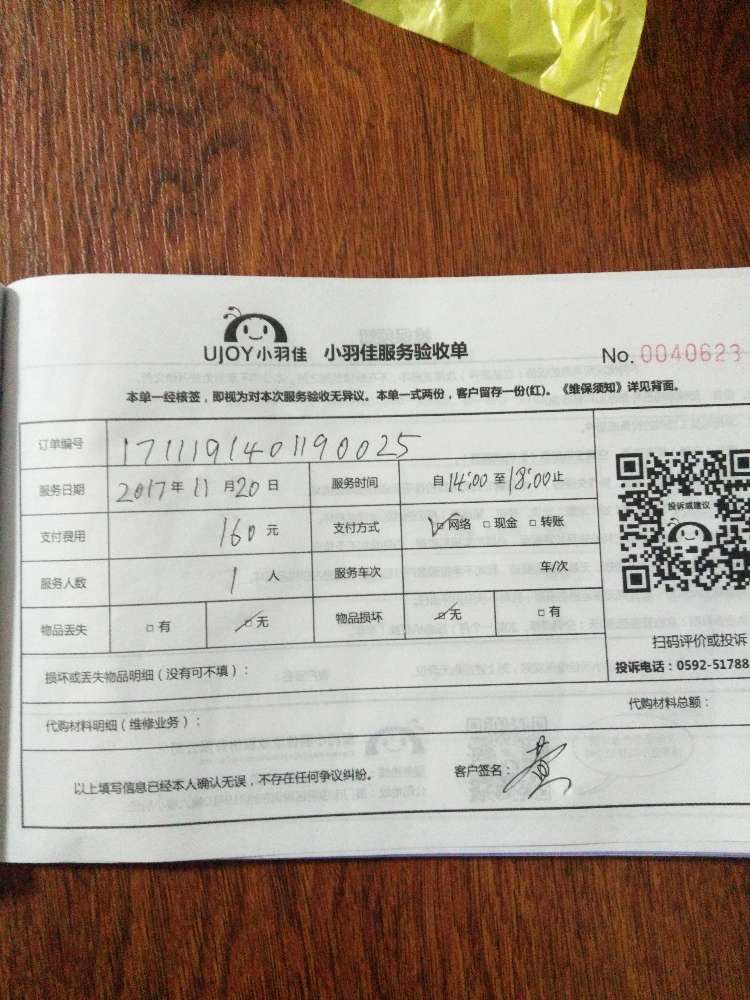 UJOY小羽佳 小羽佳服务验收单 No. 0040623
本单一经核签，即视为对本次服务验收无异议。本单一式两份，客户留存一份(红)。《维保须知》详见背面。
订单编号 1711191401190025
服务日期 2017年11月20日 服务时间 自14:00至18:00止
投诉或建议
支付费用 160元 支付方式 ☑网络 □现金 □转账
服务人数 1人 服务车次 车/次
物品丢失 □有 ☑无 物品损坏 ☑无 □有
扫码评价或投诉
损坏或丢失物品明细（没有可不填）： 投诉电话：0592-51788
代购材料明细（维修业务）： 代购材料总额：
以上填写信息已经本人确认无误，不存在任何争议纠纷。 客户签名：黄